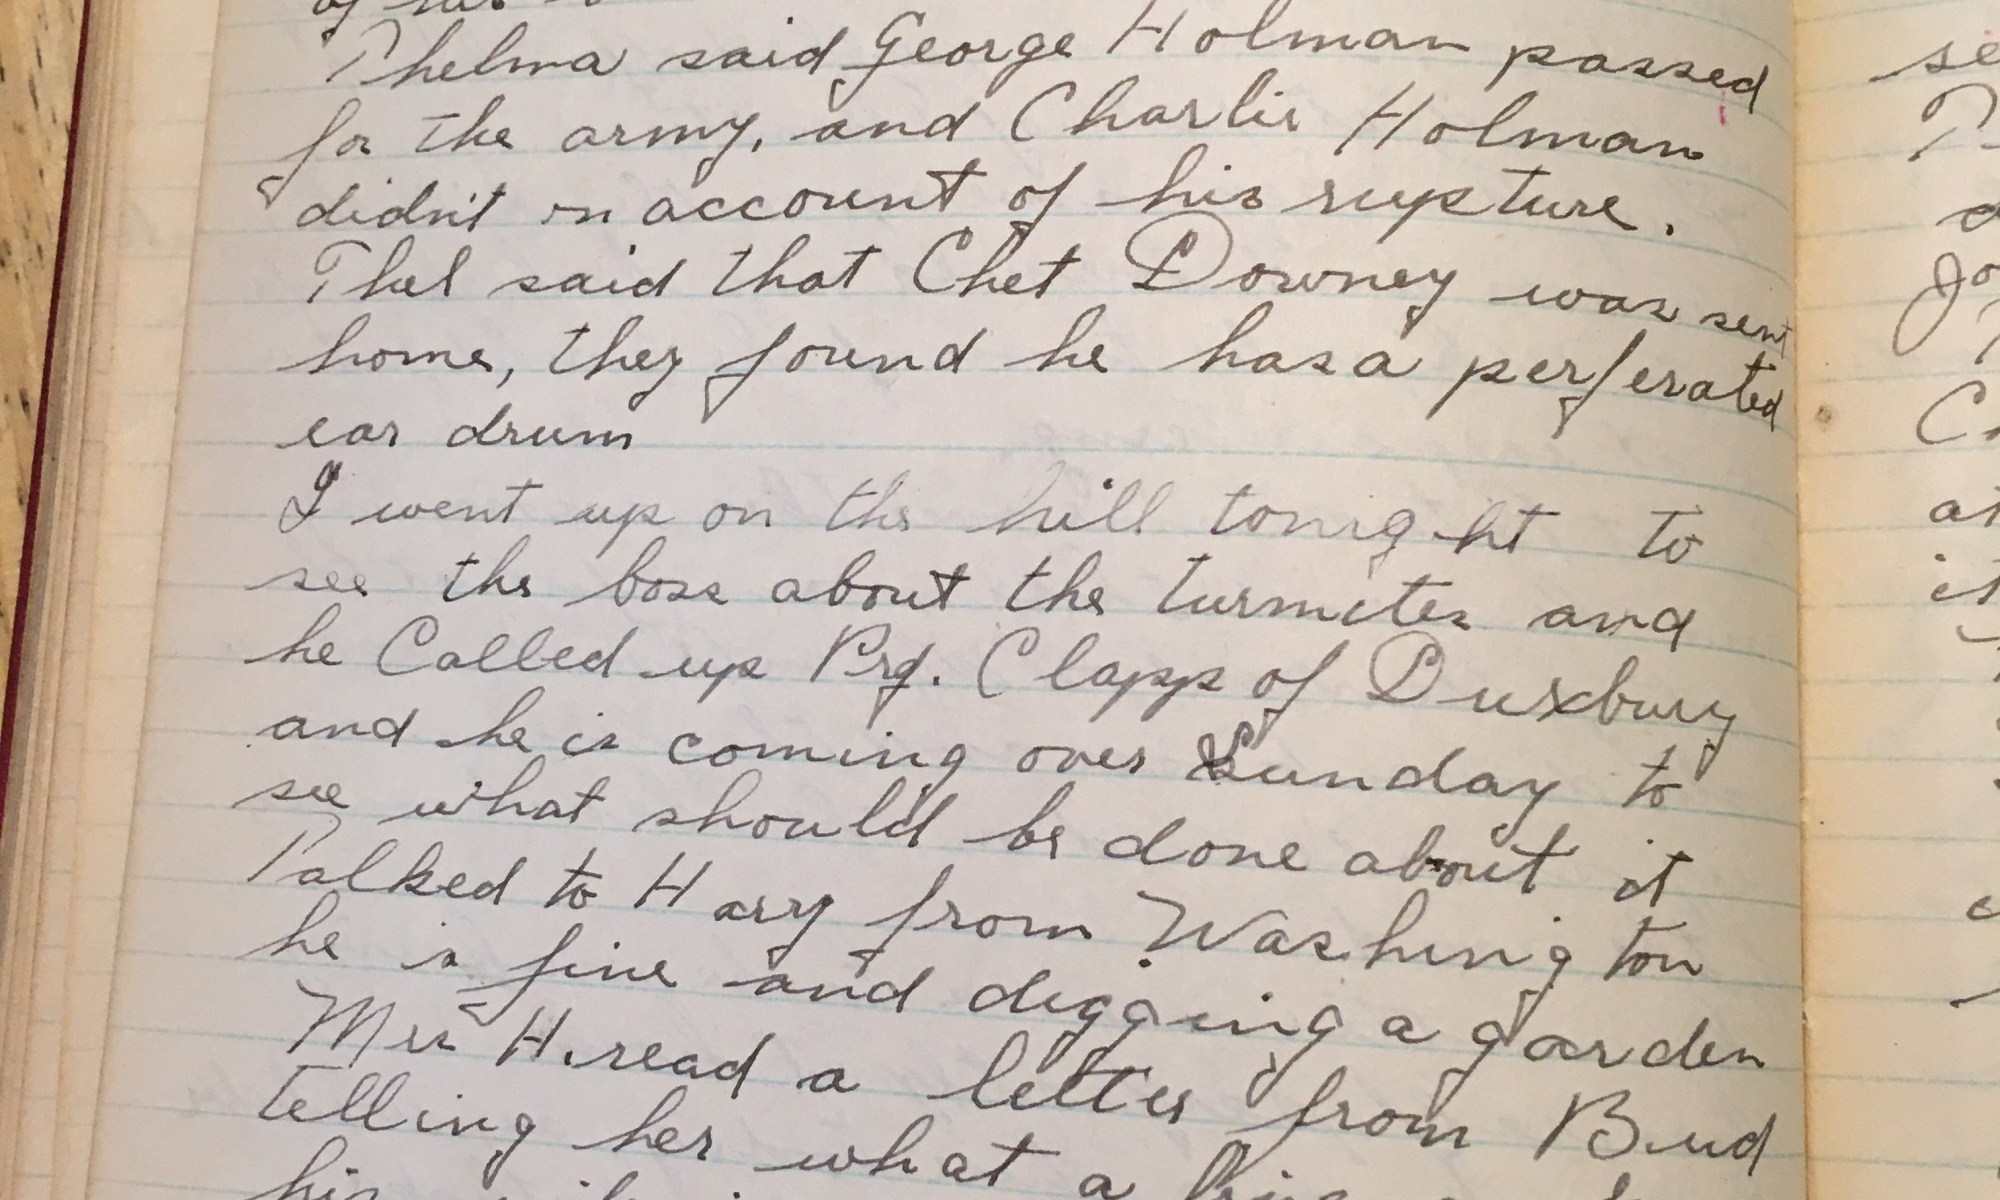 of his
Thelma said George Holman passed
for the army, and Charlie Holman
didn't on account of his rupture.
Thel said that Chet Downey was sent
home, they found he has a perferated
ear drum
I went up on the hill tonight to
see the boss about the turmites and
he Called up Prf. Clapp of Duxbury
and he is coming over Sunday to
see what should be done about it
Talked to Hary from Washington
he is fine and digging a garden
Mrs H. read a letter from Bud
telling her what a
his